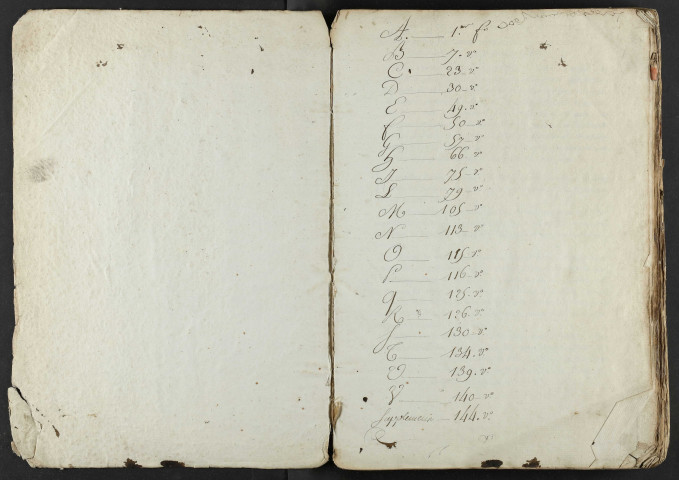 A. 1.r f.o
B 7. v.o
C 23 - v.o
D 30 - v.o
E 49 - v.o
f 50 - v.o
G 57 - v.o
H 66 v.o
J 75 - v.o
L 79 - v.o
M 105 - v.o
N 113 - v.o
O 115 r.o
P 116 - v.o
q 125 - v.o
R 126 - v.o
S 130 - v.o
T 134. v.o
V 139. v.o
V 140 - v.o
Supplement 144. v.o